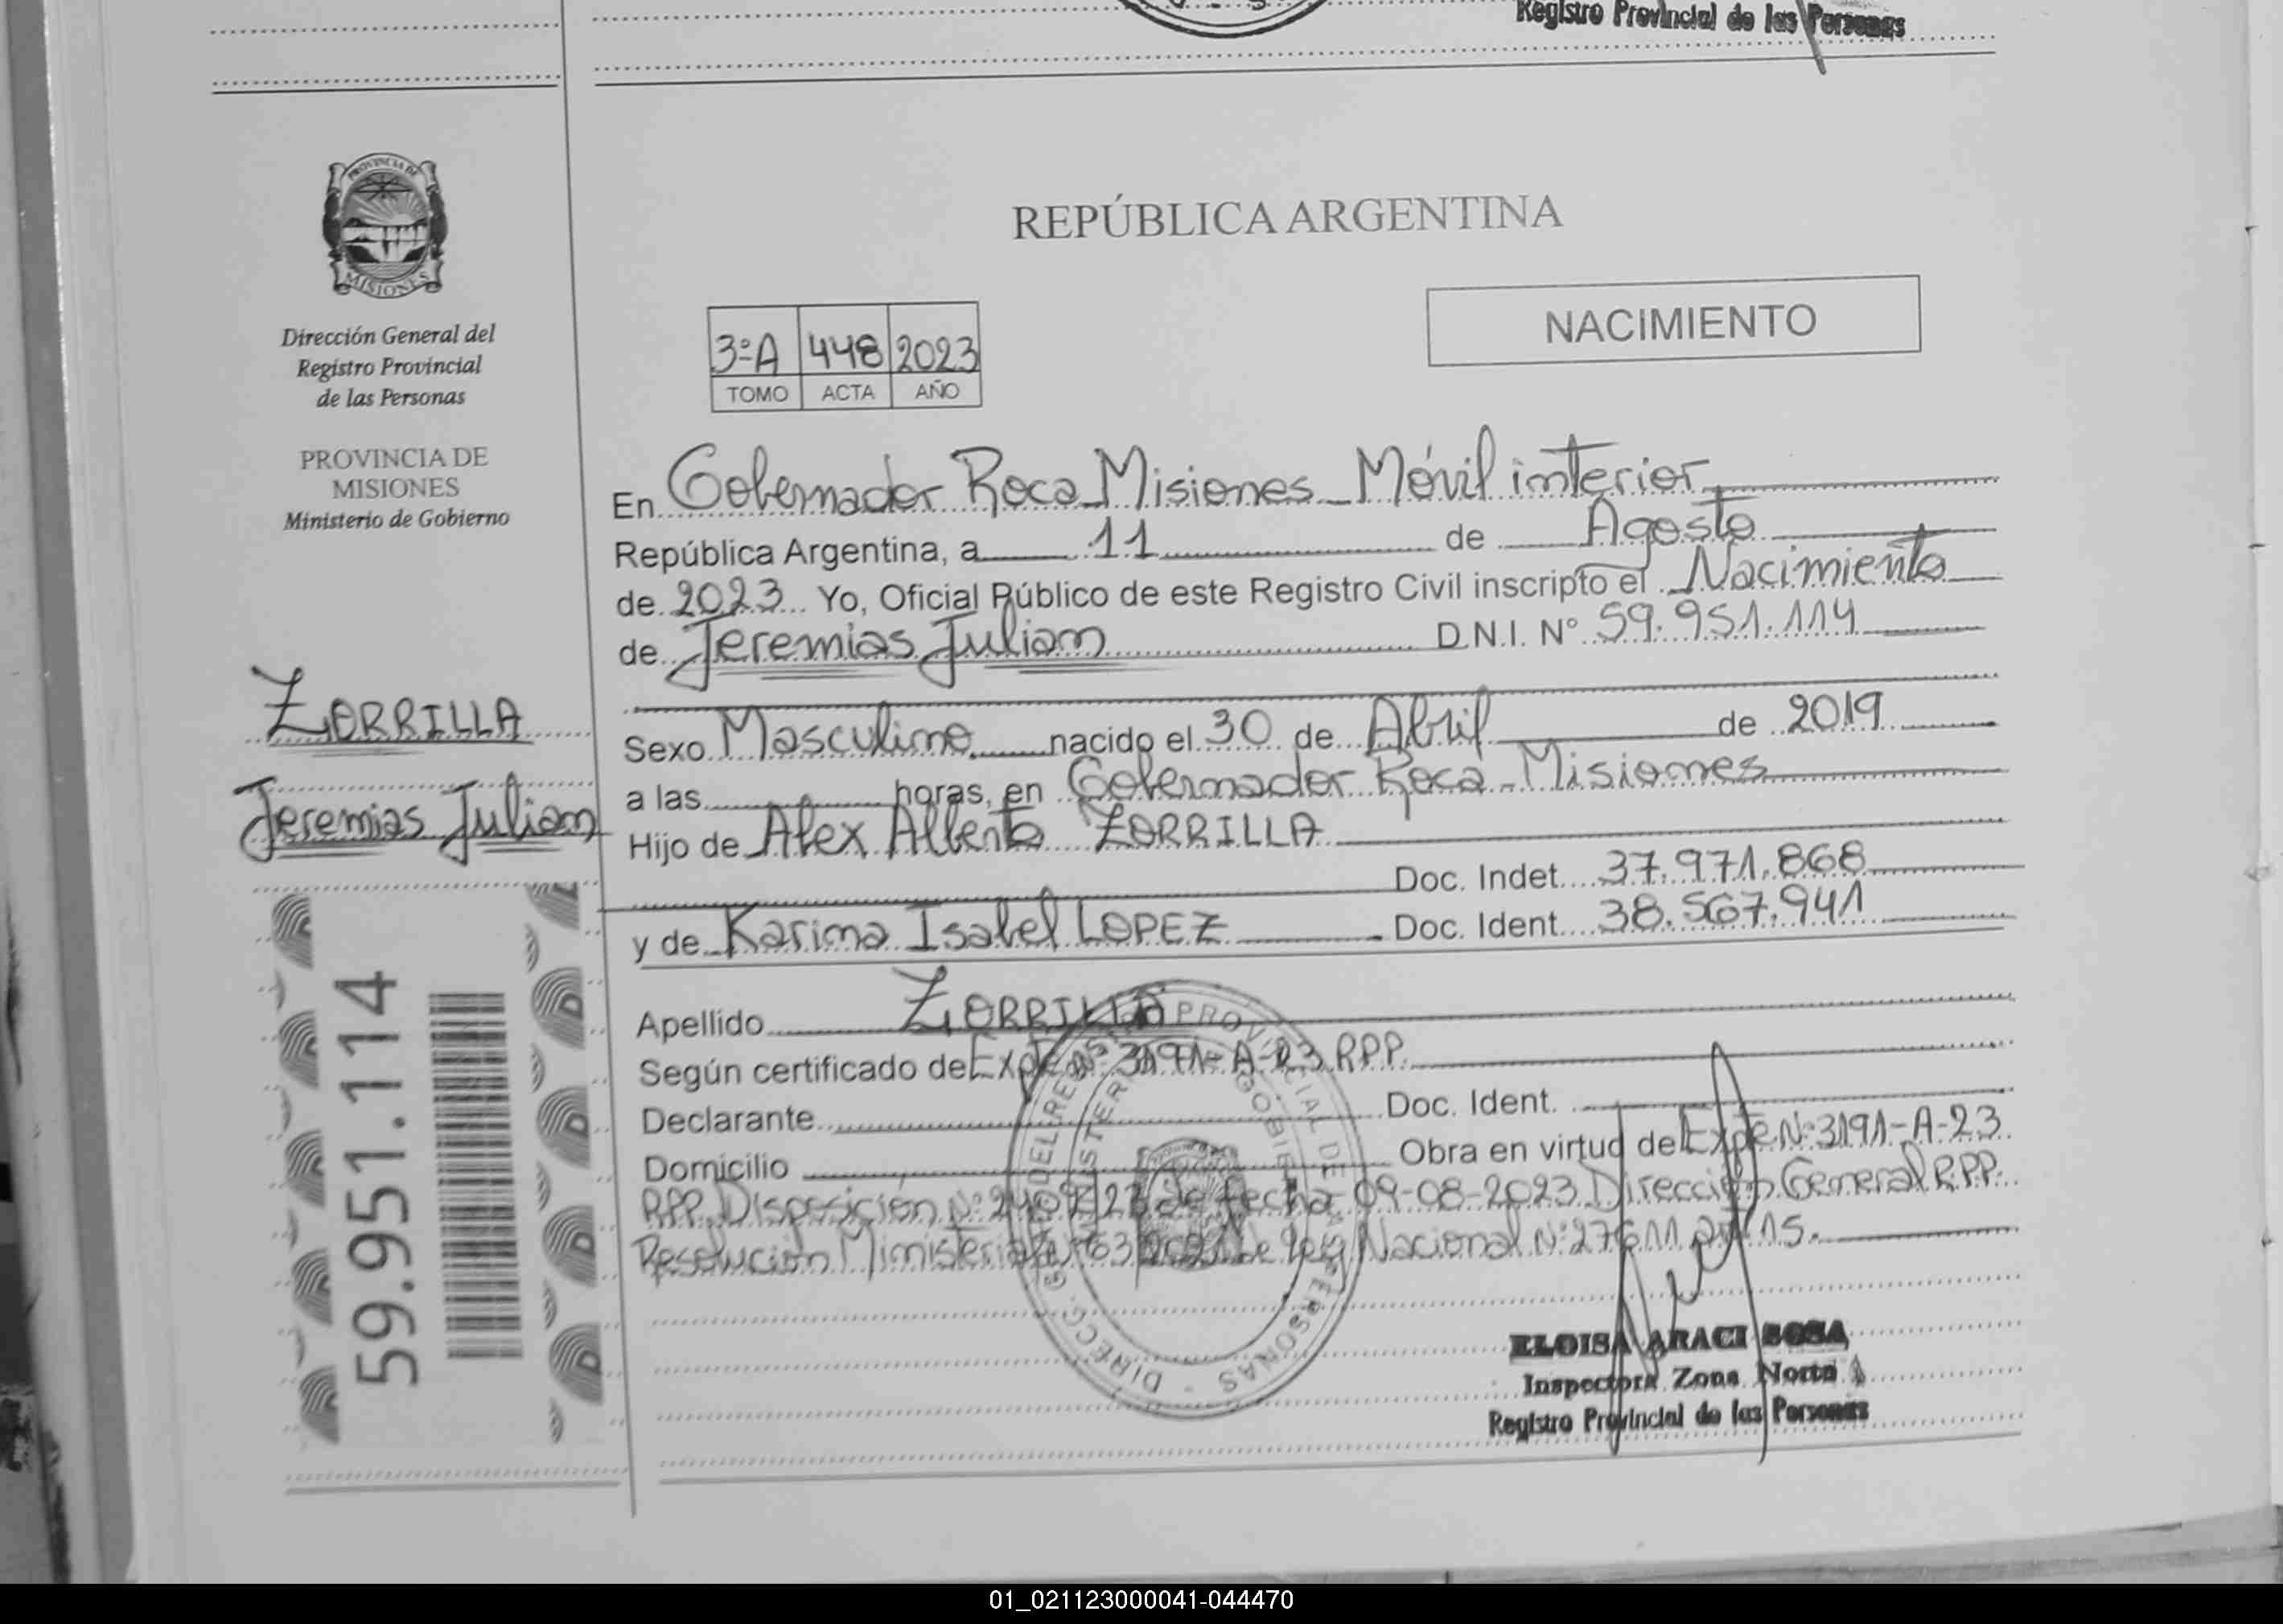 Registro Provincial de las Personas
PROVINCIA DE
MISIONES
Dirección General del
Registro Provincial
de las Personas
PROVINCIA DE
MISIONES
Ministerio de Gobierno
ZORRILLA
Jeremias Julian
59.951.114
REPÚBLICA ARGENTINA
NACIMIENTO
3ºA 448 2023
TOMO ACTA AÑO
En Gobernador Roca Misiones Móvil interior
República Argentina, a 11 de Agosto
de 2023 Yo, Oficial Público de este Registro Civil inscripto el Nacimiento
de Jeremias Julian D.N.I. Nº 59.951.114
Sexo Masculino nacido el 30 de Abril de 2019
a las horas, en Gobernador Roca - Misiones
Hijo de Alex Alberto ZORRILLA
Doc. Indet. 37.971.868
y de Karina Isabel LOPEZ Doc. Ident. 38.567.941
Apellido ZORRILLA
Según certificado de Expte Nº 3191-A-23 RPP.
Declarante Doc. Ident.
Domicilio Obra en virtud de Expte Nº 3191-A-23
RPP. Disposición Nº de fecha 09-08-2023 Dirección General R.P.P.
Resolución Ministerial Ley Nacional Nº 27611 art 15.
ELOISA ARACI SOSA
Inspectora Zona Norte
Registro Provincial de las Personas
01_021123000041-044470